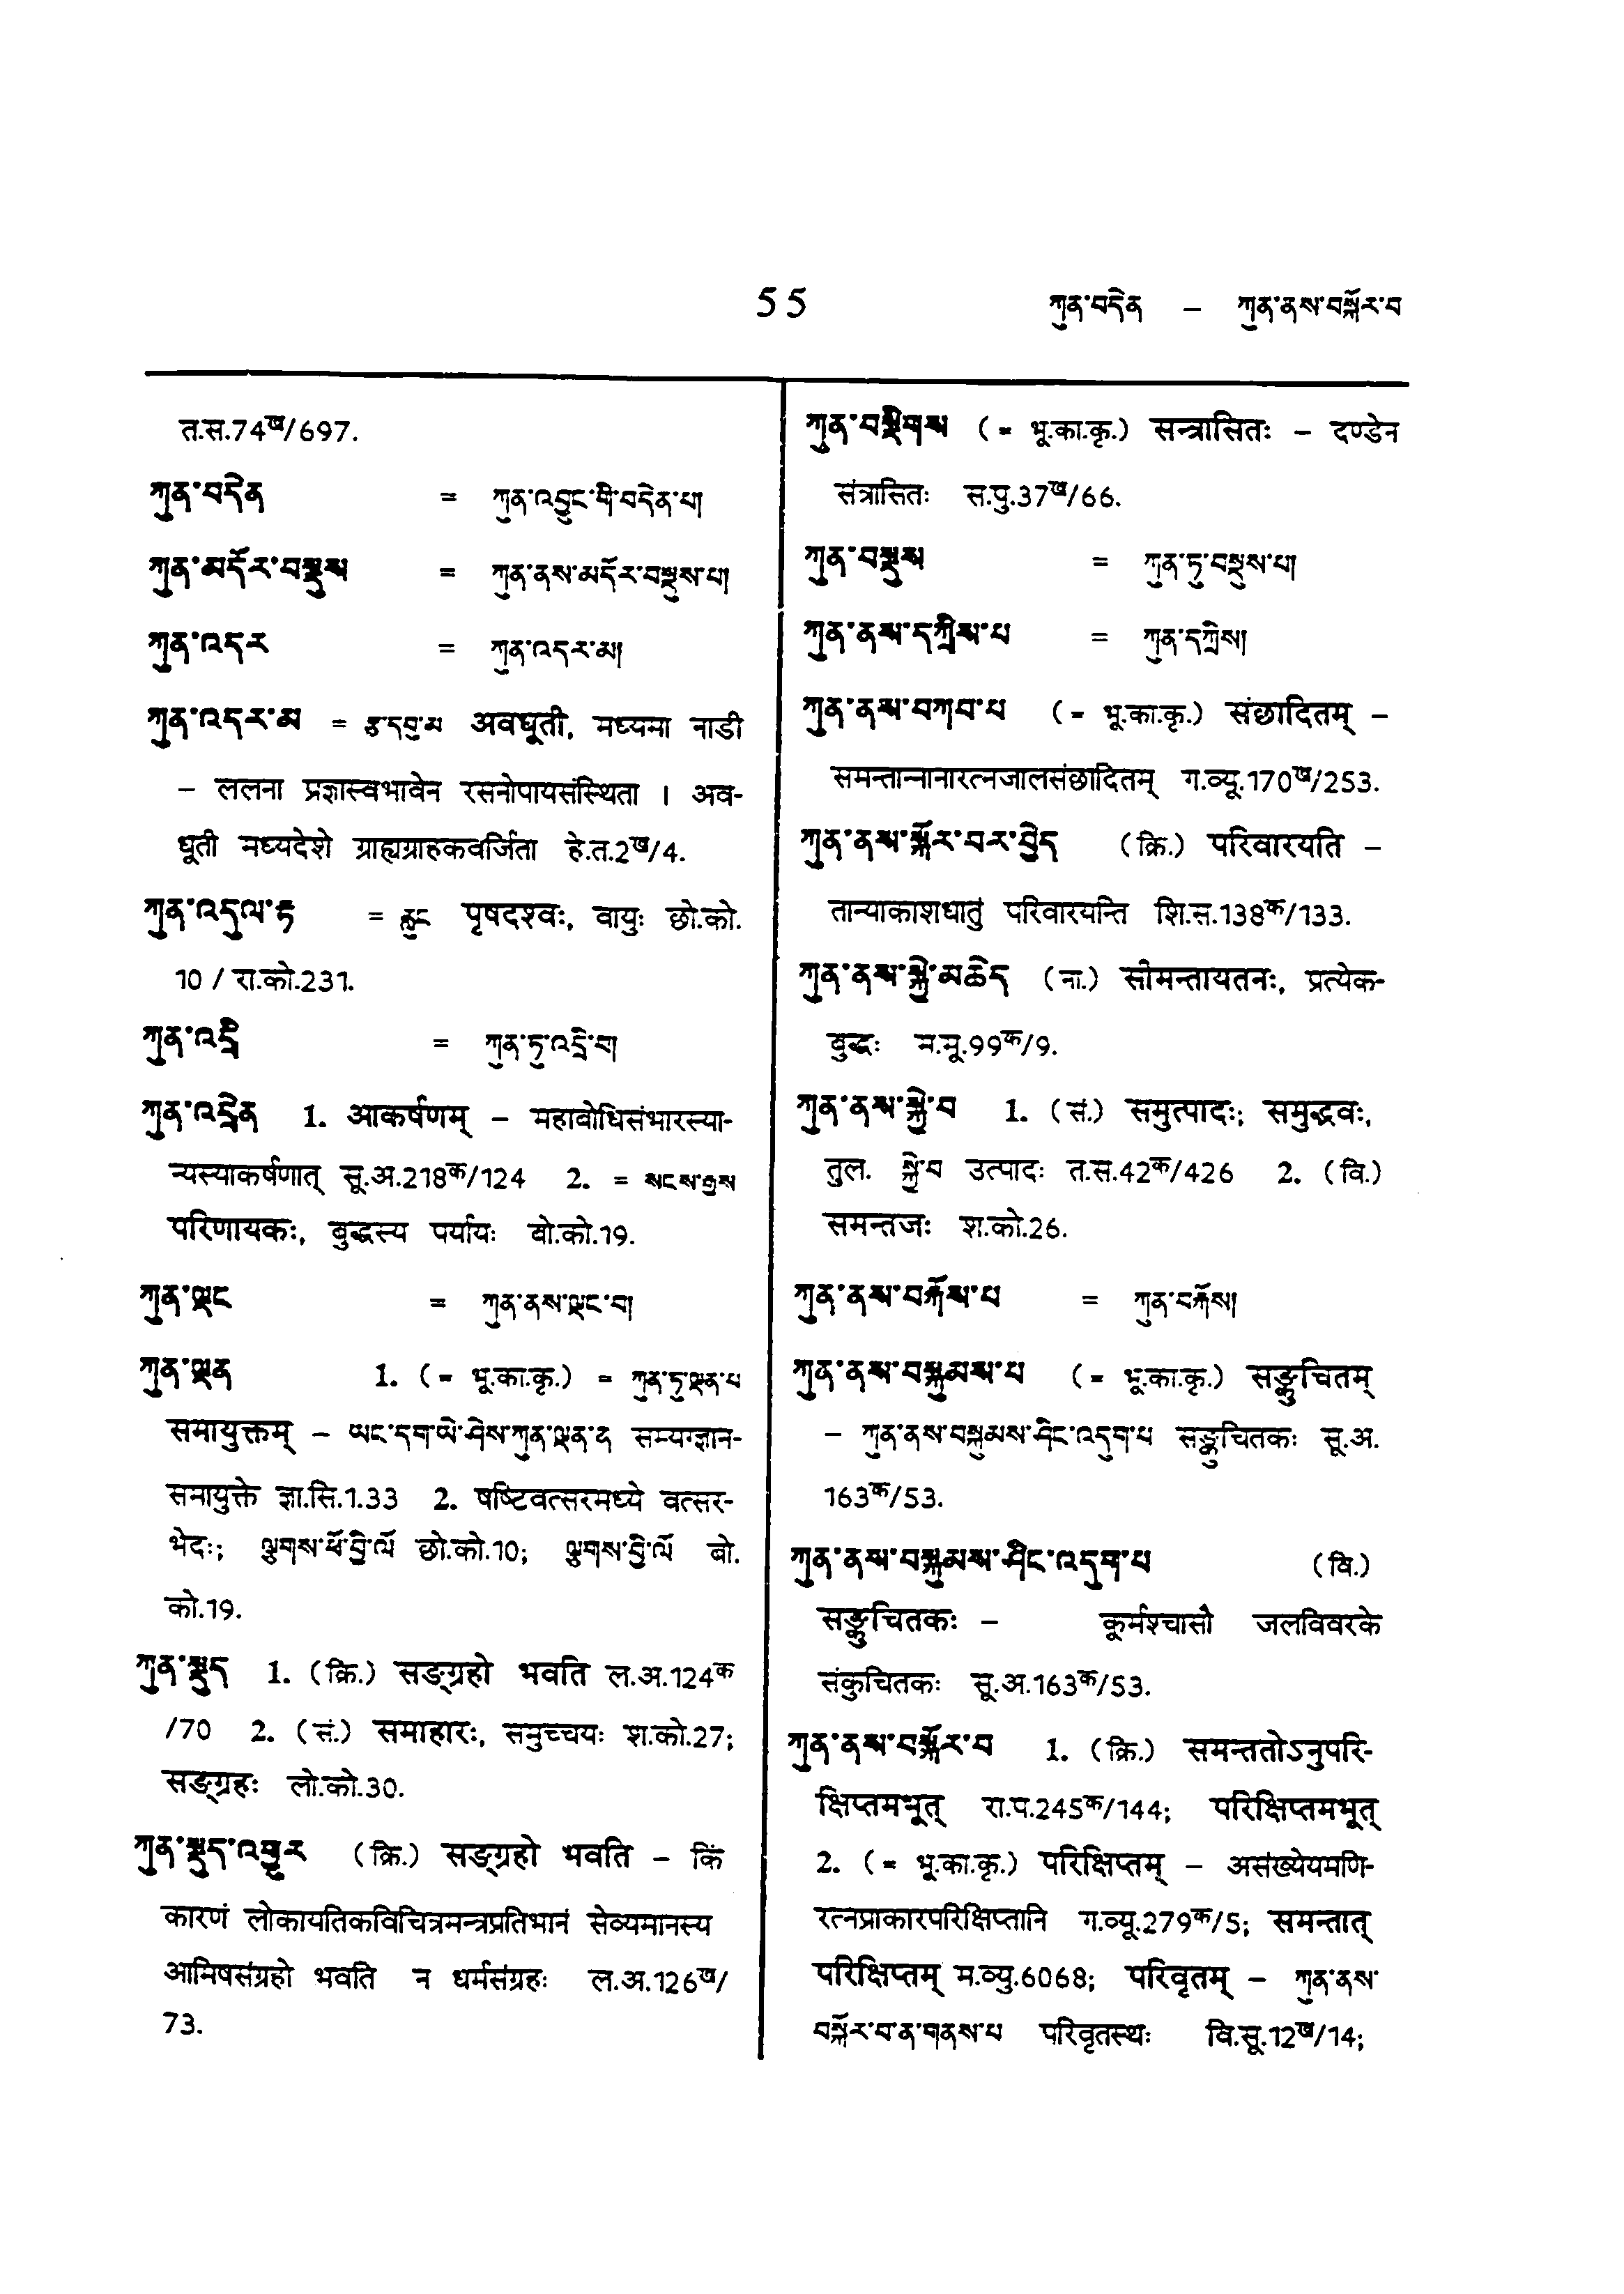 55 ཀུན་བདེན – ཀུན་ནས་བསྐོར་བ
त.स.74ख/697.
ཀུན་བདེན = ཀུན་འབྱུང་གི་བདེན་པ།
ཀུན་མདོར་བསྡུས = ཀུན་ནས་མདོར་བསྡུས་པ།
ཀུན་འདར = ཀུན་འདར་མ།
ཀུན་འདར་མ = རྩ་དབུ་མ अवधूती, मध्यमा नाडी
– ललना प्रज्ञास्वभावेन रसनोपायसंस्थिता । अव-
धूती मध्यदेशे ग्राह्यग्राहकवर्जिता हे.त.2ख/4.
ཀུན་འདུལ་རྟ = རླུང पृषदश्वः, वायुः छो.को.
10 / रा.को.231.
ཀུན་འདྲི = ཀུན་ཏུ་འདྲི་བ།
ཀུན་འདྲེན 1. आकर्षणम् – महाबोधिसंभारस्या-
न्यस्याकर्षणात् सू.अ.218क/124 2. = སངས་རྒྱས
परिणायकः, बुद्धस्य पर्यायः बो.को.19.
ཀུན་ལྡང = ཀུན་ནས་ལྡང་བ།
ཀུན་ལྡན 1. (= भू.का.कृ.) = ཀུན་ཏུ་ལྡན་པ
समायुक्तम् – ཡང་དག་ཡེ་ཤེས་ཀུན་ལྡན་ན सम्यग्ज्ञान-
समायुक्ते ज्ञा.सि.1.33 2. षष्टिवत्सरमध्ये वत्सर-
भेदः; ལྕགས་ཕོ་བྱི་ལོ छो.को.10; ལྕགས་བྱི་ལོ बो.
को.19.
ཀུན་སྡུད 1. (क्रि.) सङ्ग्रहो भवति ल.अ.124क
/70 2. (सं.) समाहारः, समुच्चयः श.को.27;
सङ्ग्रहः लो.को.30.
ཀུན་སྡུད་འགྱུར (क्रि.) सङ्ग्रहो भवति – किं
कारणं लोकायतिकविचित्रमन्त्रप्रतिभानं सेव्यमानस्य
आमिषसंग्रहो भवति न धर्मसंग्रहः ल.अ.126ख/
73.
ཀུན་བསྡིགས (= भू.का.कृ.) सन्त्रासितः – दण्डेन
संत्रासितः स.पु.37ख/66.
ཀུན་བསྡུས = ཀུན་ཏུ་བསྡུས་པ།
ཀུན་ནས་དཀྲིས་པ = ཀུན་དཀྲིས།
ཀུན་ནས་བཀབ་པ (= भू.का.कृ.) संछादितम् –
समन्तान्नानारत्नजालसंछादितम् ग.व्यू.170ख/253.
ཀུན་ནས་སྐོར་བར་བྱེད (क्रि.) परिवारयति –
तान्याकाशधातुं परिवारयन्ति शि.स.138क/133.
ཀུན་ནས་སྐྱེ་མཆེད (ना.) सीमन्तायतनः, प्रत्येक-
बुद्धः म.मू.99क/9.
ཀུན་ནས་སྐྱེ་བ 1. (सं.) समुत्पादः; समुद्भवः,
तुल. སྐྱེ་བ उत्पादः त.स.42क/426 2. (वि.)
समन्तजः श.को.26.
ཀུན་ནས་བརྐོས་པ = ཀུན་བརྐོས།
ཀུན་ནས་བསྐུམས་པ (= भू.का.कृ.) सङ्कुचितम्
– ཀུན་ནས་བསྐུམས་ཤིང་འདུག་པ सङ्कुचितकः सू.अ.
163क/53.
ཀུན་ནས་བསྐུམས་ཤིང་འདུག་པ (वि.)
सङ्कुचितकः – कूर्मश्चासौ जलविवरके
संकुचितकः सू.अ.163क/53.
ཀུན་ནས་བསྐོར་བ 1. (क्रि.) समन्ततोऽनुपरि-
क्षिप्तमभूत् रा.प.245क/144; परिक्षिप्तमभूत्
2. (= भू.का.कृ.) परिक्षिप्तम् – असंख्येयमणि-
रत्नप्राकारपरिक्षिप्तानि ग.व्यू.279क/5; समन्तात्
परिक्षिप्तम् म.व्यु.6068; परिवृतम् – ཀུན་ནས་
བསྐོར་བ་ན་གནས་པ परिवृतस्थः वि.सू.12ख/14;